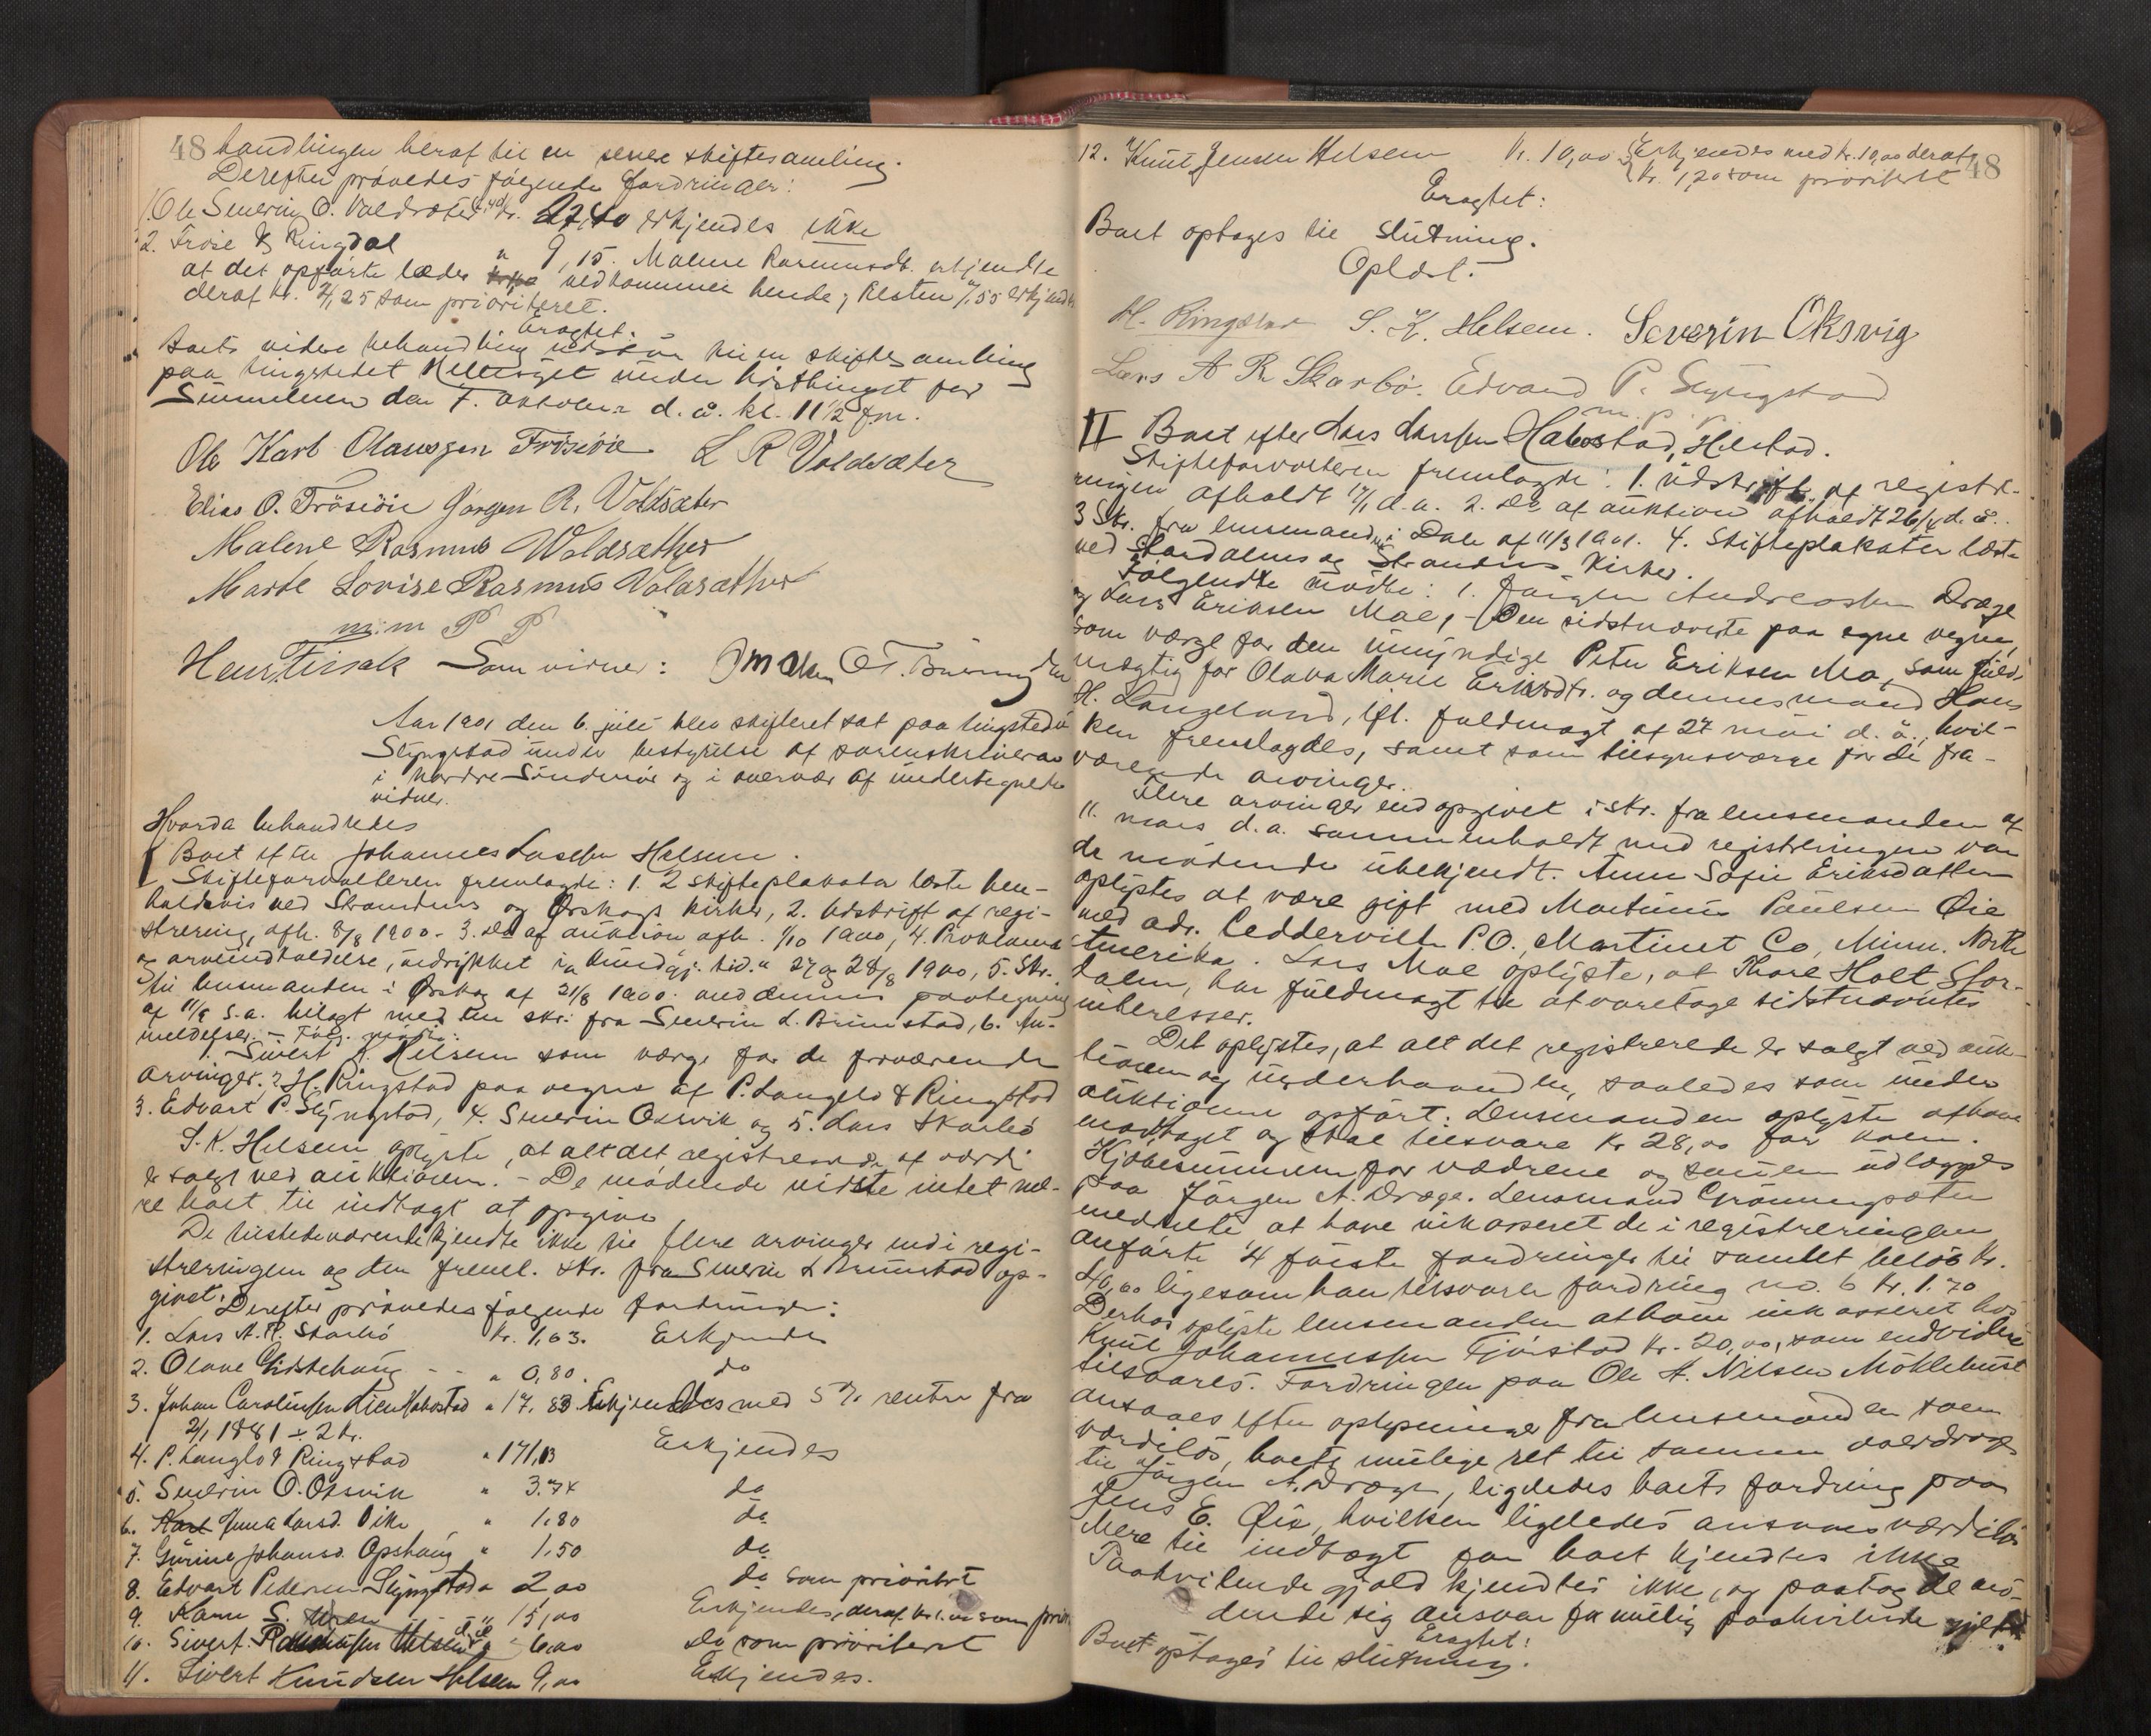 48 handlingen heraf til en senere skiftesamling.
Derefter prøvedes følgende fordringer:
1. Ole Severin O. Valdsæter kr. 27,40 erkjendes ikke
2. Frøse & Ringdal " 9,15. Malene Rasmusdt. erkjendte
at det opførte læder vedkommer hende; Resten erkjendt
deraf kr. 4,25 som prioriteret.
Eragtet:
Boets videre behandling udsættes til en skiftesamling
paa tingstedet under høsttinget for
den 7. oktober d. å. kl. 11 1/2 fm.
Ole Karl Olaussen Frösiöie L R Voldsæter
Elias O. Frösiöie Jørgen R. Voldsæter
Malene Rasmus Woldsæther
Marte Lovise Rasmus Voldsæther
m. m P P
Som vidner:
Aar 1901 den 6. juli blev skifteret sat paa tingstedet
Slyngstad under bestyrelse af sorenskriveren
i nordre Søndmør og i overvær af undertegnede
vidner.
Hvorda behandledes
I Boet efter Johannes Larssen Helsem.
Skifteforvalteren fremlagde: 1. 2 skifteplakater læste hen-
holdsvis ved Strandens og Ørskogs kirker, 2. Udskrift af regi-
strering, afh. 8/8 1900. 3. do af auktion afh. 1/10 1900, 4. Proklama
og arveindkaldelse, indrykket i "kundgj. tid." 27 og 28/8 1900, 5. Skr.
til lensmanden i Ørskog af 21/8 1900 med dennes paategning
af 11/9 s.a. bilagt med en skr. fra Severin L. Brunstad, 6. An-
meldelser. - Følg. mødte:
1. Sivert K. Helsem som værge for de fraværende
arvinger. 2 H. Ringstad paa vegne af P. Langlo & Ringstad
3. Edvart P. Slyngstad, 4. Severin Oksvik og 5. Lars Skarbö
S. K. Helsem oplyste, at alt det registrerede af værdi
er solgt ved auktionen. - De mødende vidste intet me-
re boet til indtægt at opgive
De tilstedeværende kjendte ikke til flere arvinger end i regi-
streringen og den freml. skr. fra Severin L Brunstad op-
givet.
Derefter prøvedes følgende fordringer:
1. Lars A. R. Skarbö kr. 1,63. Erkjendes
2. Olave Gidskehaug - - " 0,80. do
3. Johan Carolussen Lien Habostad " 17,83 Erkjendes med 5 % renter fra
2/1 1881 ÷ 2 kr.
4. P. Langlo & Ringstad " 171,13 Erkjendes
5. Severin O. Oksvik " 3.74 do
6. Karl Larsd. Vik " 1,80 do
7. Gurine Johansd. Opshaug " 1,50 do
8. Edvart Pedersen Slyngstad " 2,00 do som prioritert
9. Karn S. Uren - - " 15,00 Erkjendes, deraf kr. 1.00 som prior.
10. Sivert Helsem " 6,00 do som prioriteret
11. Sivert Knudsen Helsem 9,00 Erkjendes.
12. Knut Jensen Helsem kr. 10,00 Erkjendes med kr. 10,00 deraf
kr. 1,20 som prioritert
48
Eragtet:
Boet optages til slutning.
Oplæst.
H. Ringstad S. K. Helsem. Severin Oksvig
Lars A R Skarbö. Edvard P. Slyngstad
m. p. p.
II Boet efter Lars Larssen Habostad, Helstad.
Skifteforvalteren fremlagde: 1. Udskrift af registre-
ringen afholdt 17/1 d.a. 2. Do af auktion afholdt 26/4 d. å.
3 Skr. fra lensmanden i Dale af 11/3 1901. 4. Skifteplakater læste
ved Stordalens og Strandens Kirker.
Følgende mødte: 1. Jørgen Andreassen Dræge
og Lars Eriksen Moe, - Den sidstnævnte paa egne vegne,
som værge for den umyndige Peter Eriksen Mo, som fuld-
mægtig for Olava Marie Eriksdtr. og dennes mand Hans
H. Langeland, ifl. fuldmagt af 27 mai d. å., hvil-
ken fremlagdes, samt som tilsynsværge for de fra-
værende arvinger.
Flere arvinger end opgivet i skr. fra lensmanden af
11. mars d.a. sammenholdt med registreringen var
de mødende ubekjendt. Anne Sofie Eriksdatter
oplystes at være gift med Martinus Paulsen Øie
med adr. Ceddervill P.O., Martinet Co, Minn. North
Amerika. Lars Moe oplyste, at Thore Holt, Stor-
dalen, har fuldmagt til at varetage sidstnævntes
interesser.
Det oplystes, at alt det registrerede er solgt ved auk-
tionen og underhaanden, saaledes som under
auktionen opført. Lensmanden oplyste at have
modtaget og skal tilsvare kr 28,00 for koen.
Kjøbesummen for vædrene og sauen udlægges
paa Jørgen A. Dræge. Lensmand Grønningsæter
meddelte at have inkasseret de i registreringen
anførte 4 første fordringer til samlet beløb kr.
40,00 ligesom han tilsvarer fordring no. 6 kr. 1.70
Derhos oplyste lensmanden at have inkasseret hos
Knut Johannessen Fjørstad kr. 20,00, som endvidere
tilsvares. Fordringen paa Ole A. Nilsen Möklebust
ansaaes efter oplysninger fra lensmanden som
værdiløs, boets mulige ret til samme overdrages
til Jørgen A. Dræge, ligeledes boets fordring paa
Jens E. Øie, hvilken ligeledes ansaaes værdiløs
Mere til indtægt for boet kjendtes ikke
Paahvilende gjæld kjendtes ikke, og paatog de mø-
dende sig ansvar for mulig paahvilende gjæld
Eragtet:
Boet optages til slutning.